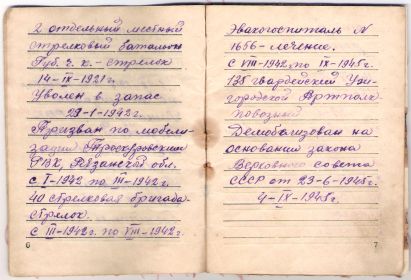 2 отдельный местный
стрелковый батальон
Губ. ч. к. - стрелок
14-IX-1921г.
Уволен в запас
23-1-1942г.
Призван по мобили-
зации Троекуровским
РВК, Рязанской обл.
с I-1942 по III-1942г.
40 стрелковая бригада-
стрелок.
с III-1942г. по VIII-1942г.
6
Эвакогоспиталь N
1656 - лечение.
с VIII-1942г. по IX-1945г.
135 гвардейский Уж-
городский Артполк
повозный
Демобилизован на
основании закона
Верховного Совета
СССР от 23-6-1945г.
4-IX-1945г.
7